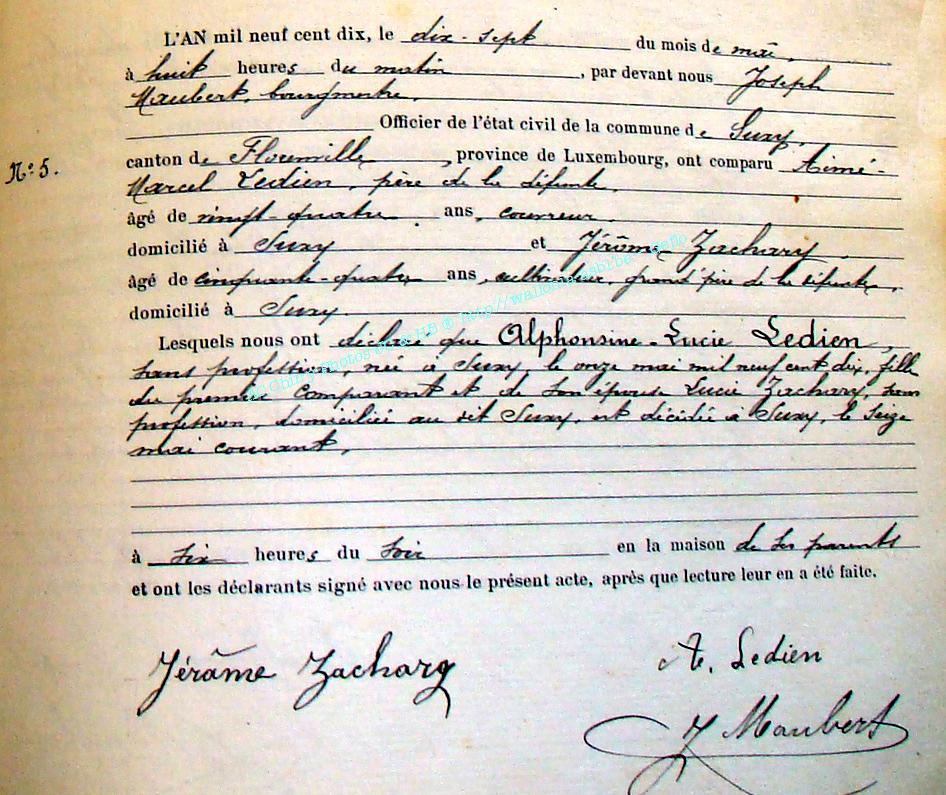 L'AN mil neuf cent dix, le dix-sept du mois de mai,
à huit heures du matin, par devant nous Joseph
Maubert, bourgmestre,
Officier de l'état civil de la commune de Suxy,
N° 5.
canton de Florenville, province de Luxembourg, ont comparu Aimé-
Marcel Ledien, père de la défunte,
âgé de vingt-quatre ans, couvreur,
domicilié à Suxy et Jérôme Zachary,
âgé de cinquante-quatre ans, cultivateur, grand'père de la défunte,
domicilié à Suxy
Lesquels nous ont déclaré que Alphonsine-Lucie Ledien,
sans profession, née à Suxy, le onze mai mil neuf cent dix, fille
du premier comparant et de son épouse Lucie Zachary, sans
profession, domiciliée au dit Suxy, est décédée à Suxy, le seize
mai courant,
à six heures du soir en la maison de ses parents
et ont les déclarants signé avec nous le présent acte, après que lecture leur en a été faite.
Jérôme Zachary
A. Ledien
J Maubert